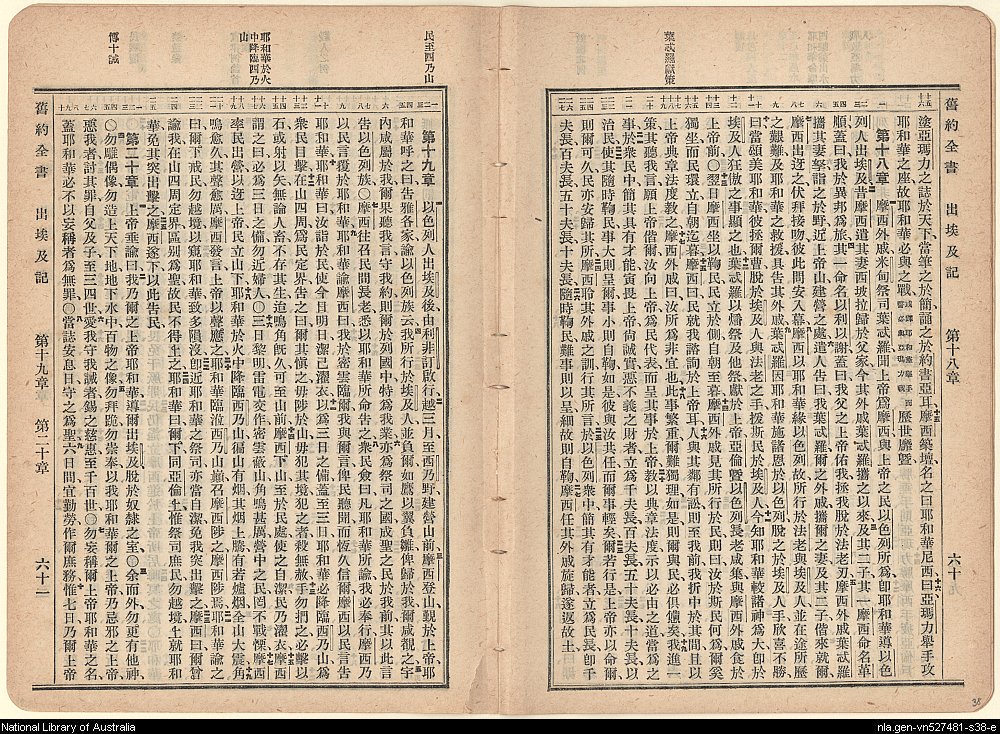 舊約全書 出埃及記 第十八章
葉忒羅獻策
塗亞瑪力之誌於天下當筆之於簡誦之於約書亞耳摩西築壇名之曰耶和華尼西曰亞瑪力舉手攻
耶和華之座故耶和華必與之戰 歷世靡曁
第十八章 摩西外戚米甸祭司葉忒羅聞上帝爲摩西與上帝之民以色列所爲卽耶和華導以色
列人出埃及昔摩西遣其妻西坡拉歸於父家今其外戚葉忒羅攜之以來及其二子其一摩西命名革
順蓋曰我於異邦爲旅其一命名以利以謝蓋曰我父之上帝佑我拯我脫於法老刃摩西外戚葉忒羅
攜其妻孥詣之於野近上帝山建營之處遣人告曰我葉忒羅爾之外戚攜爾之妻及其二子偕來就爾
摩西出迓之伏拜接吻彼此問安入幕摩西以耶和華緣以色列故所行於法老與埃及人並在途所歷
之艱難及耶和華之救援具告其外戚葉忒羅因耶和華施諸恩於以色列脫之於埃及人手欣喜不勝
曰當頌美耶和華彼拯爾曹脫於埃及人與法老之手拨斯民於埃及人今知耶和華較諸神爲大卽於
埃及人狂傲之事顯之也葉忒羅以燔祭及他祭獻於上帝亞倫曁以色列長老咸集與摩西外戚食於
上帝前〇翌日摩西坐以鞫民民立於側自朝至暮摩西外戚見其所行於民則曰汝於斯民何爲爾奚
獨坐而民環立自朝迄暮摩西曰民就我諮詢於上帝耳人與其鄰有訟則至我前我折中於其間且以
上帝典章法度教之摩西外戚曰汝所爲非宜也此事繁重爾難獨理如是則爾與民必俱憊矣我進一
策其聽我言願上帝偕爾汝向上帝爲民代表而呈其事於上帝教以典章法度示以必由之道當爲之
事於衆民中簡其具有才能寅畏上帝尙誠實惡不義之財者立之爲千夫長百夫長五十夫長十夫長以
治民使其隨時鞫民事大則呈爾事小則自鞫如是彼與汝共任而爾事輕矣爾若行是上帝亦以命爾
則爾可久民亦安歸其所摩西聆其外戚之訓行其所言於以色列衆中簡其有才能者立爲民長卽千
夫長百夫長五十夫長十夫長隨時鞫民難事則以呈細故則自鞫摩西任其外戚旋歸遂返故土
民至西乃山
耶和華於火中降臨西乃山
傳十誡
第十九章 以色列人出埃及後由利非訂啟行越三月至西乃野建營山前摩西登山覲於上帝耶
和華呼之曰告雅各家諭以色列族云我所行於埃及人並負爾如鷹以翼負雛俾歸於我爾咸覩之宇
內咸屬於我爾果聽我言守我約則爾於列國中特爲我業亦爲祭司之國成聖之民於我前其以此言
告以色列族〇摩西往召民間長老悉以耶和華所命告之衆民僉曰凡耶和華所諭我必奉行摩西乃
以民言復於耶和華耶和華諭摩西曰我於密雲臨爾我與爾言俾民聽聞而恆久信爾摩西以民言告
耶和華耶和華曰汝詣於民使今日明日潔已濯衣以爲三日之備蓋至三日耶和華必降臨西乃山爲
衆民目擊在山四周爲民定界告之曰爾其愼之毋陟於山毋犯其境犯之者殺無赦手勿捫之必擊以
石或射以矢無論人畜不存其生迨鳴角既久可至山前摩西下山至於民處使之自潔民乃濯衣摩西
謂之曰必爲三日之備勿近婦人〇三日黎明雷電交作密雲蔽山角鳴甚厲營中之民罔不戰慄摩西
率民出營以迓上帝民立山下耶和華於火中降臨西乃山徧山有烟其烟上騰有若爐烟全山大震角
鳴愈久其聲愈厲摩西發言上帝以聲應之耶和華臨涖西乃山巔召摩西陟之摩西陟焉耶和華諭之
曰爾下戒民勿越境以窺耶和華致多隕沒卽近耶和華之祭司亦當自潔免我突出擊之摩西曰爾曾
諭我在山四周定界區别爲聖故民不得上之耶和華曰爾下同亞倫上惟祭司庶民勿越境上就耶和
華免其突出擊之摩西遂下以此告民
第二十章 上帝垂諭曰我乃爾之上帝耶和華導爾出埃及脫於奴隸之室〇余而外勿更有他神
〇勿雕偶像勿造上天下地地下水中百物之像勿拜跪勿崇奉以我耶和華爾之上帝乃忌邪之上帝
惡我者討其罪自父及子至三四世愛我守我誡者錫之慈惠至千百世〇勿妄稱爾上帝耶和華之名
蓋耶和華必不以妄稱者爲無罪〇當誌安息日守之爲聖六日間宜勤勞作爾庶務惟七日乃爾上帝
舊約全書 出埃及記 第十九章 第二十章
National Library of Australia
nla.gen-vn527481-s38-e